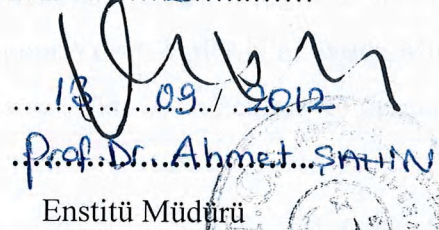 13 / 09 / 2012
Prof. Dr. Ahmet ŞAHİN
Enstitü Müdürü